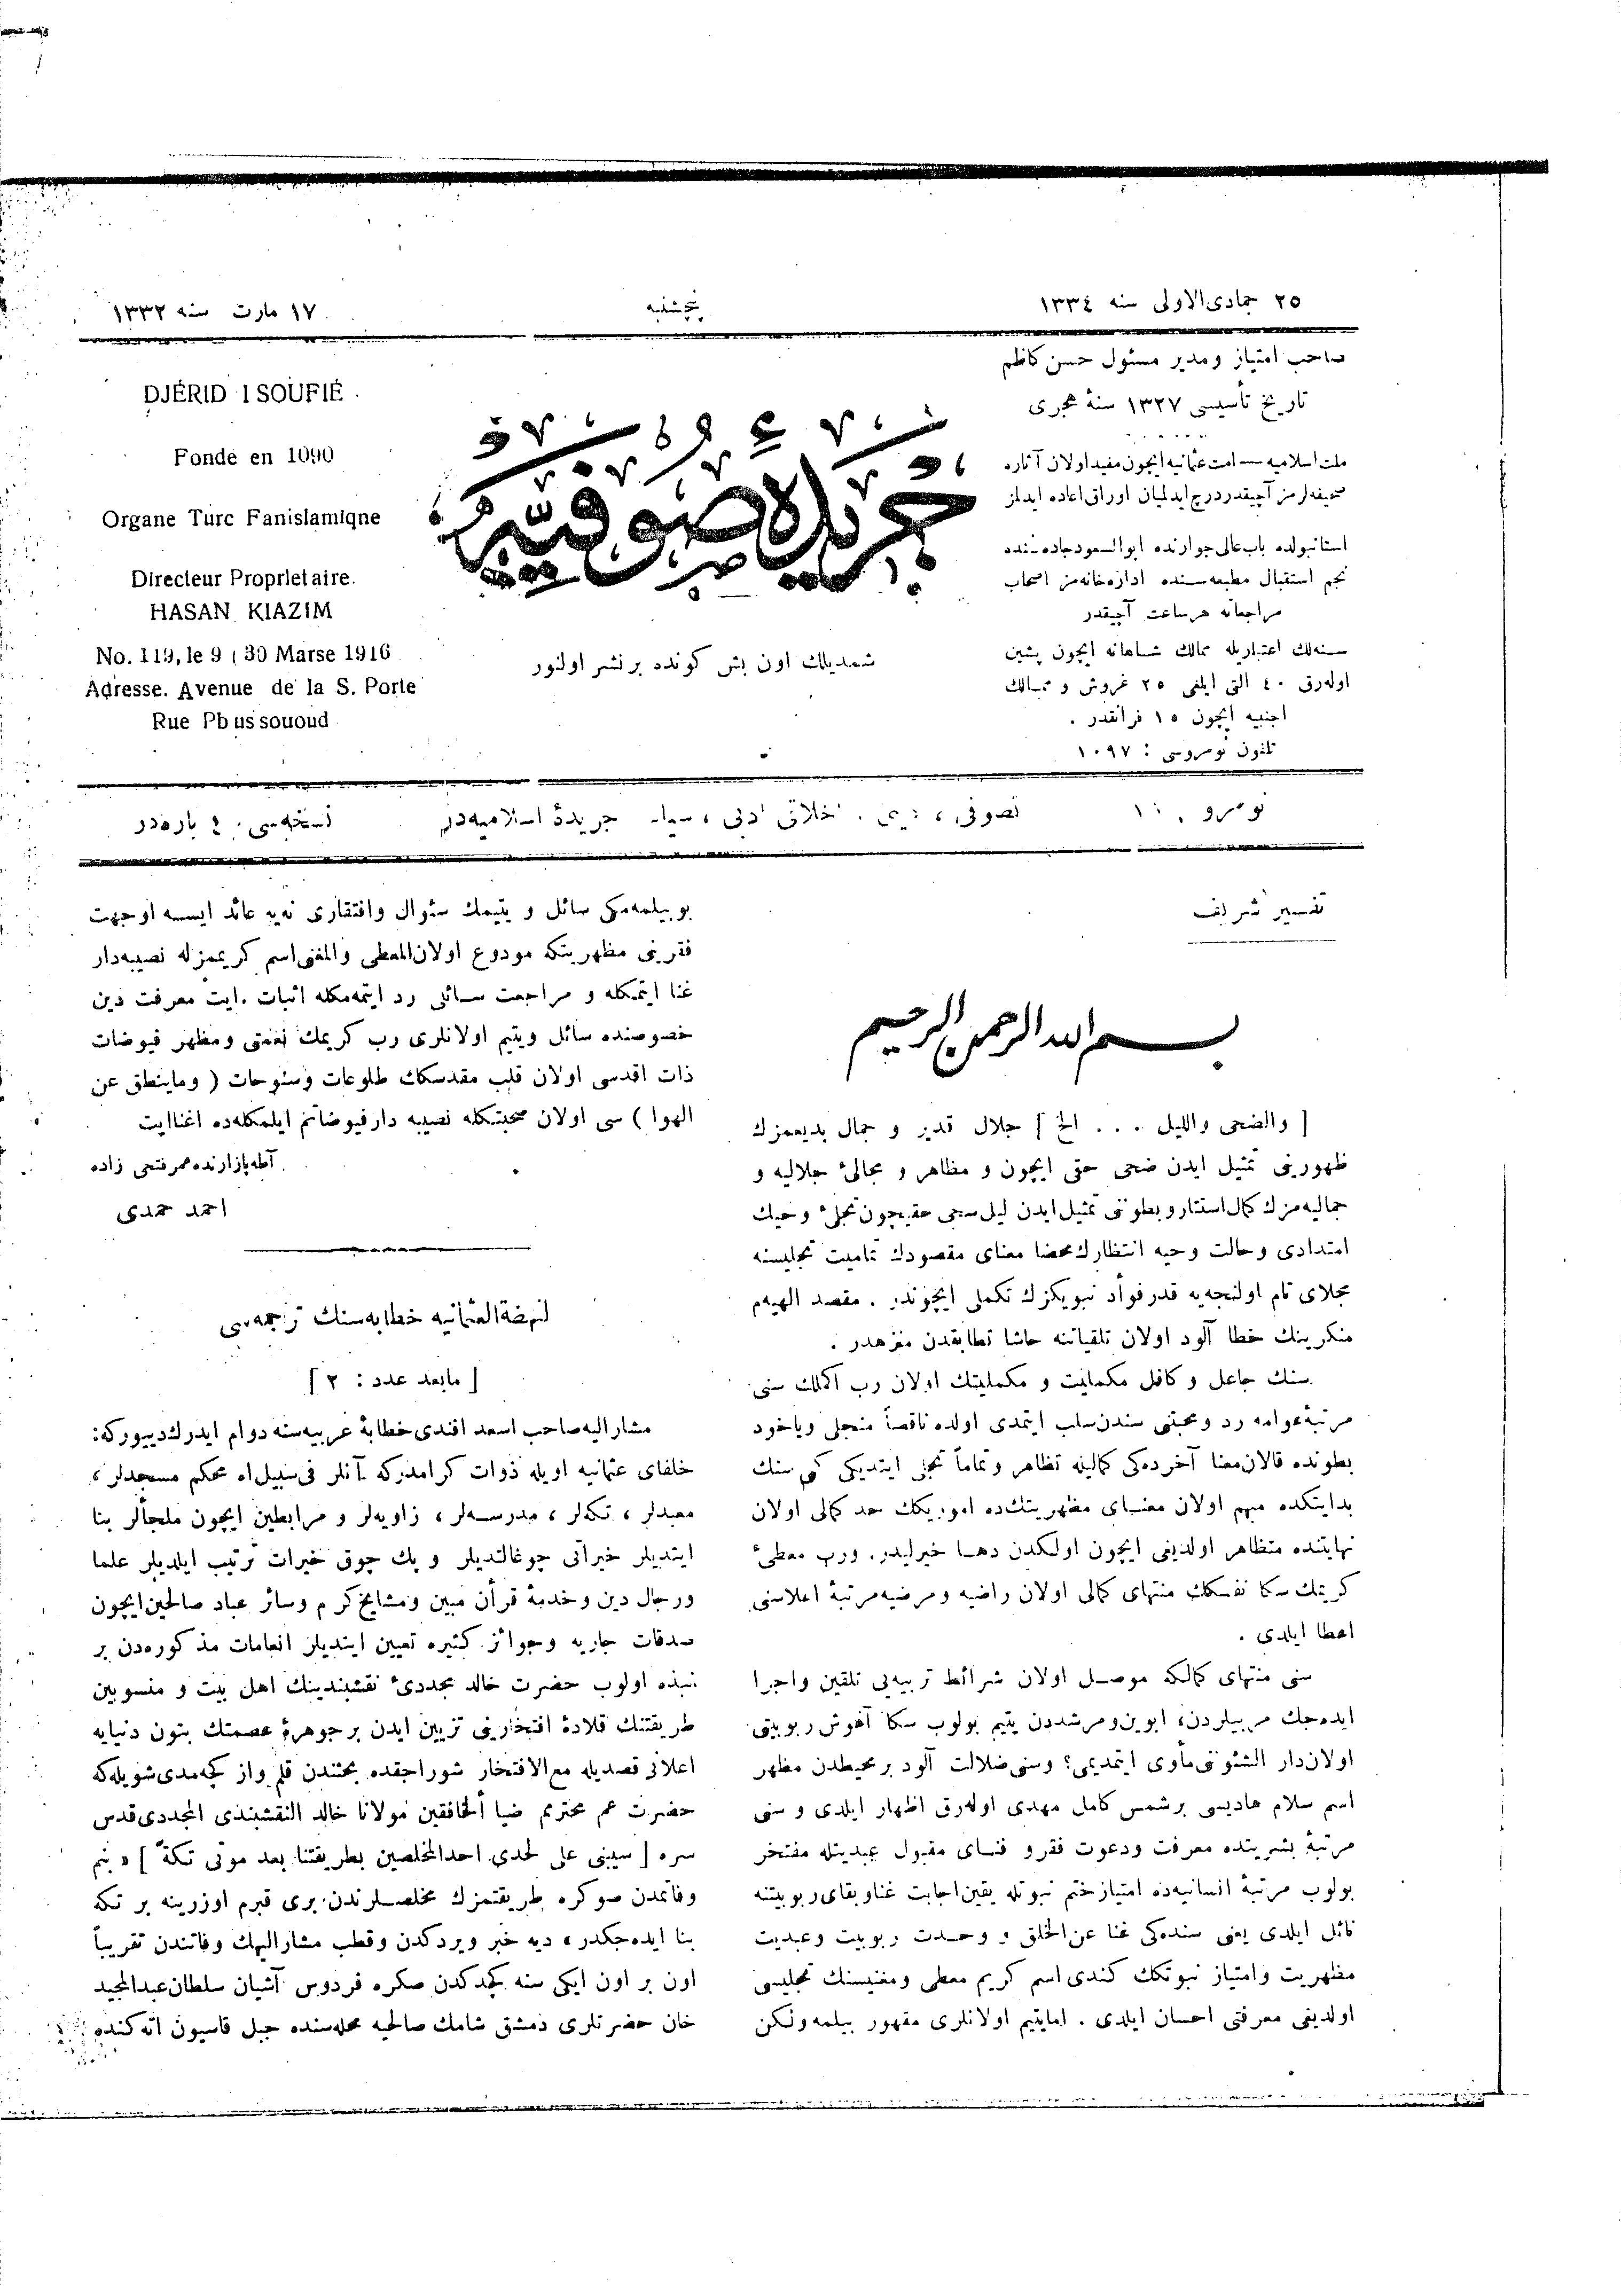 ٢٥ جمادى‌الاولى سنه ١٣٣٤
پنجشنبه
١٧ مارت سنه ١٣٣٢
صاحب امتياز ومدير مسئول حسن كاظم
تاريخ تأسيسى ١٣٢٧ سنهٔ هجرى
ملت اسلاميه — امت عثمانيه ايچون مفيد اولان آثاره
صحيفه‌لرمز آچيقدر درج ايدلميان اوراق اعاده ايدلمز
استانبولده باب عالى جوارنده ابوالسعود جاده‌سنده
نجم استقبال مطبعه‌سنده اداره‌خانه‌مز اصحاب
مراجعاته هر ساعت آچيقدر
سنه‌لك اعتباريله ممالك شاهانه ايچون پشين
اوله‌رق ٤٠ التى ايلغى ٢٥ غروش و ممالك
اجنبيه ايچون ١٥ فرانقدر .
تلفون نومروسى : ١٠٩٧
جريدهٔ صوفيه
شمديلك اون بش كونده بر نشر اولنور
DJÉRID I SOUFIÉ
Fonde en 1090
Organe Turc Fanislamiqne
Directeur Proprietaire.
HASAN KIAZIM
No. 119, le 9 ( 30 Marse 1916
Adresse. Avenue de la S. Porte
Rue Pbussououd
نومرو
تصوفى ، دينى ، اخلاقى ادبى ، سياسى جريدهٔ اسلاميه‌در
نسخه‌سى ٤٠ پاره‌در
تفسير شريف
بسم الله الرحمن الرحيم
[ والضحى والليل . . . الخ ] جلال قدير و جمال بديعمزك
ظهورينى تمثيل ايدن ضحى حقى ايچون و مظاهر و مجالئ جلاليه و
جماليه‌مزك كمال استتار و بطوننى تمثيل ايدن ليل سجى حقيچون تجلئ وحيك
امتدادى وحالت وحيه انتظارك محضا معناى مقصودك تماميت تجليسنه
مجلاى تام اولنجه‌يه قدر فوأد نبويكزك تكملى ايچوندر . مقصد الهيه‌م
منكرينك خطا آلود اولان تلقياتنه حاشا تطابقدن منزهدر .
سنك جاعل و كافل مكمليت و مكمليتك اولان رب اكملك سنى
مرتبهٔ عوامه رد و محبتنى سندن سلب ايتمدى اولده ناقصاً منجلى وياخود
بطونده قالان معنا آخرده‌كى كمالينه تظاهر و تماماً تجلى ايتديكى كى سنك
بدايتكده مبهم اولان معناى مظهريتك‌ده امور يكك حد كمالى اولان
نهايتنده متظاهر اولديغى ايچون اولكدن دها خيرليدر. ورب معطئ
كريمك سكا نفسكك منتهاى كمالى اولان راضيه و مرضيه مرتبهٔ اعلاسنى
اعطا ايلدى .
سنى منتهاى كمالكه موصل اولان شرائط تربيه‌يى تلقين واجرا
ايده‌جك مربيلردن، ابوين و مرشددن يتيم بولوب سكا آغوش ربوبيتى
اولان دار الشئوننى مأوى ايتمديمى؟ وسنى ضلالت آلود بر محيطدن مظهر
اسم سلام هاديسى بر شمس كامل مهدى اوله‌رق اظهار ايلدى و سنى
مرتبهٔ بشريتده معرفت ودعوت فقر و فناى مقبول عبديتله مفتخر
بولوب مرتبهٔ انسانيه‌ده امتياز ختم نبوتله يقين اجابت غنا و بقاى ربوبيتنه
نائل ايلدى يعنى سنده‌كى غنا عن الخلق و وحدت ربوبيت وعبديت
مظهريت وامتياز نبوتكك كندى اسم كريم معطى و مغنيسنك تجليسى
اولديغى معرفتى احسان ايلدى . اما يتيم اولانلرى مقهور بيلمه ولكن
بو بيلمه‌مكى سائل و يتيمك سئوال وافتقارى نه‌يه عائد ايسه او جهت
فقرينى مظهريتكه مودوع اولان المعطى والمغنى اسم كريممزله نصيبه‌دار
غنا ايتمكله و مراجعت سائلى رد ايتمه‌مكله اثبات . ايت معرفت دين
خصوصنده سائل ويتيم اولانلرى رب كريمك نعمتى ومظهر فيوضات
ذات اقدسى اولان قلب مقدسكك طلوعات وسنوحات ( وماينطق عن
الهوا ) سى اولان صحبتكله نصيبه دار فيوضاتم ايلمكله‌ده اغنا ايت
آطه‌پازارنده عمر فتحى زاده
احمد حمدى
لنهضةالعثمانيه خطابه‌سنك ترجمه‌سى
[ مابعد عدد : ٢ ]
مشاراليه صاحب اسعد افندى خطابهٔ عربيه‌سنه دوام ايدرك دييوركه:
خلفاى عثمانيه اويله ذوات كرامدركه آنلر فى سبيل‌اه محكم مسجدلر ،
معبدلر ، تكه‌لر ، مدرسه‌لر ، زاويه‌لر و مرابطين ايچون ملجألر بنا
ايتديلر خيراتى چوغالتديلر و پك چوق خيرات ترتيب ايلديلر علما
ورجال دين وخدمهٔ قرأن مبين ومشايخ كرم وسائر عباد صالحين ايچون
صدقات جاريه وجوائز كثيره تعيين ايتديلر انعامات مذكوره‌دن بر
نبذه اولوب حضرت خالد مجددئ نقشبندينك اهل بيت و منسوبين
طريقتنك قلادهٔ افتخارينى تزيين ايدن بر جوهرهٔ عصمتك بتون دنيايه
اعلانى قصديله مع الافتخار شوراجقده بحثندن قلم واز كچه‌مدى شويله‌كه
حضرت عم محترمم ضيأ الخافقين مولانا خالد النقشبندى المجددى قدس
سره [ سيبنى على لحدى احد المخلصين بطريقتنا بعد موتى تكة ] « بنم
وفاتمدن صوكره طريقتمزك مخلصلرندن برى قبرم اوزرينه بر تكه
بنا ايده‌جكدر ، ديه خبر ويردكدن وقطب مشاراليهك وفاتندن تقريباً
اون بر اون ايكى سنه كچدكدن صكره فردوس آشيان سلطان عبدالمجيد
خان حضرتلرى دمشق شامك صالحيه محله‌سنده جبل قاسيون اتكنده